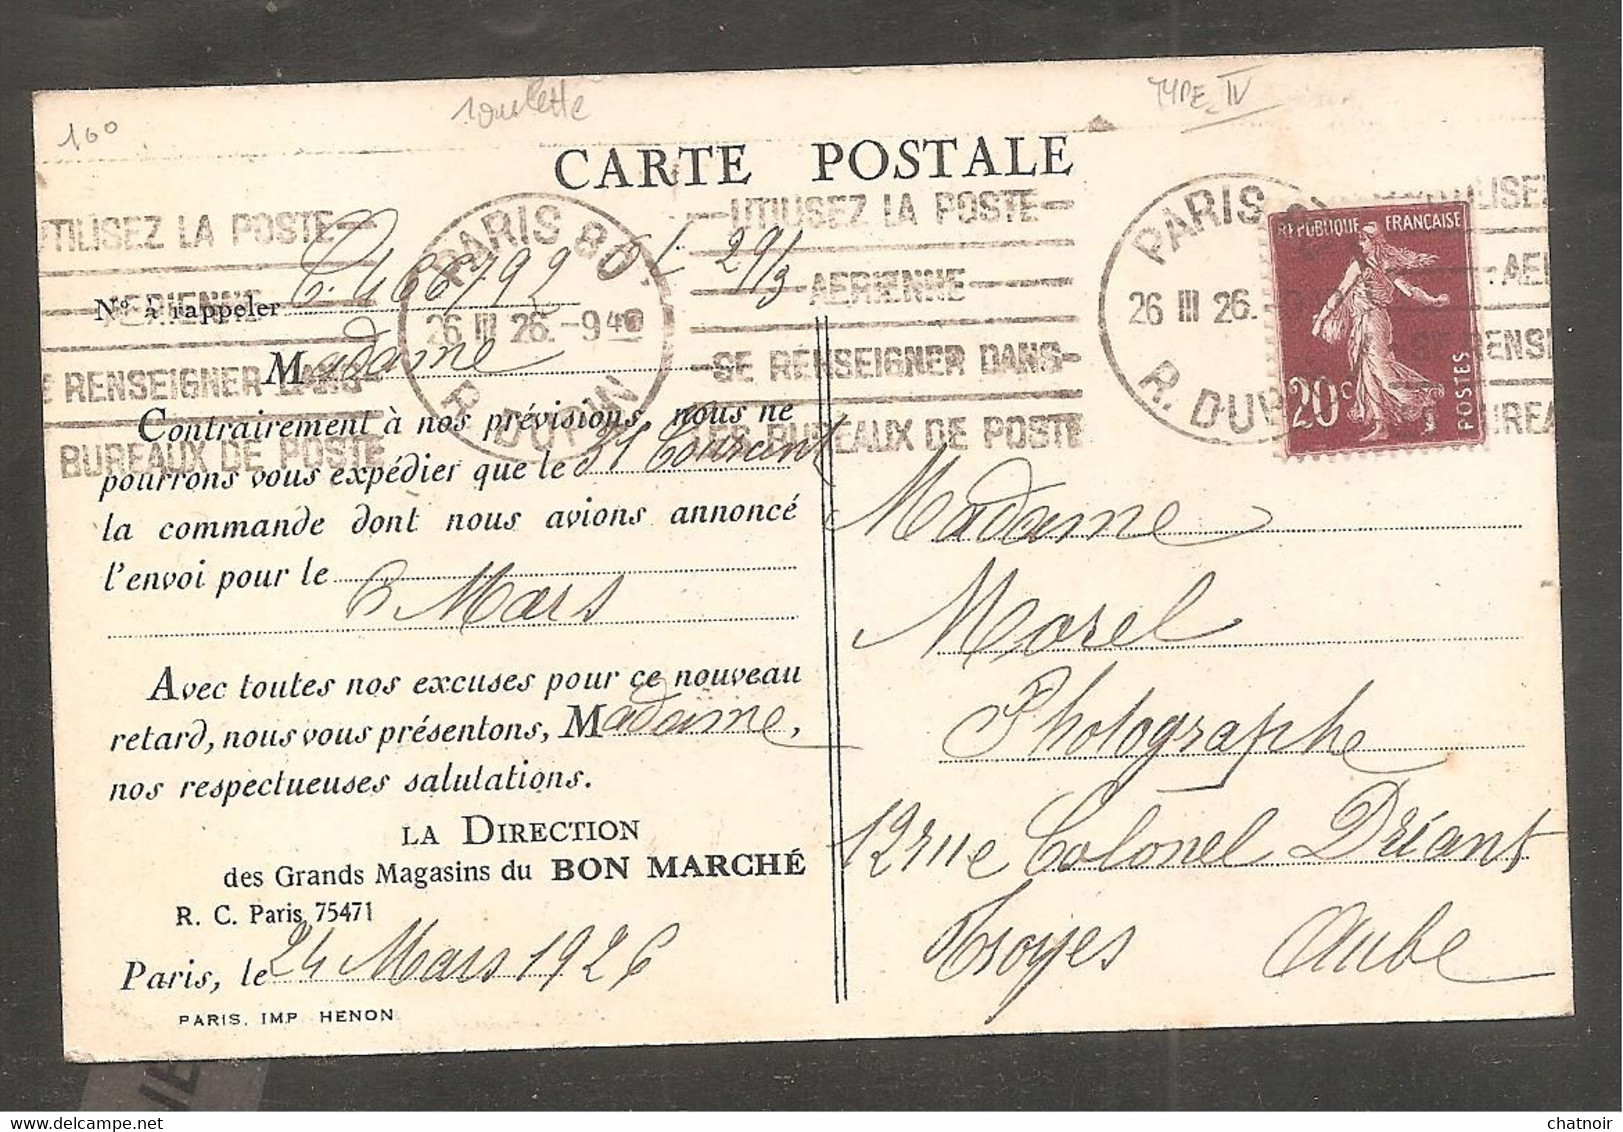 100
roulette
TYPE IV
CARTE POSTALE
UTILISEZ LA POSTE
AERIENNE
SE RENSEIGNER DANS
LES BUREAUX DE POSTE
PARIS 80
26 III 26. -9 40
R. DUPIN
REPUBLIQUE FRANÇAISE
20c
POSTES
N° à rappeler
29/3
Madame
Contrairement à nos prévisions, nous ne
pourrons vous expédier que le 31 Courant
la commande dont nous avions annoncé
l'envoi pour le
6 Mars
Avec toutes nos excuses pour ce nouveau
retard, nous vous présentons, Madame,
nos respectueuses salutations.
LA DIRECTION
des Grands Magasins du BON MARCHÉ
R. C. Paris, 75471
Paris, le 24 Mars 1926
PARIS. IMP HENON
Madame
Morel
Photographe
12 rue Colonel Driant
Troyes Aube
chatnoir